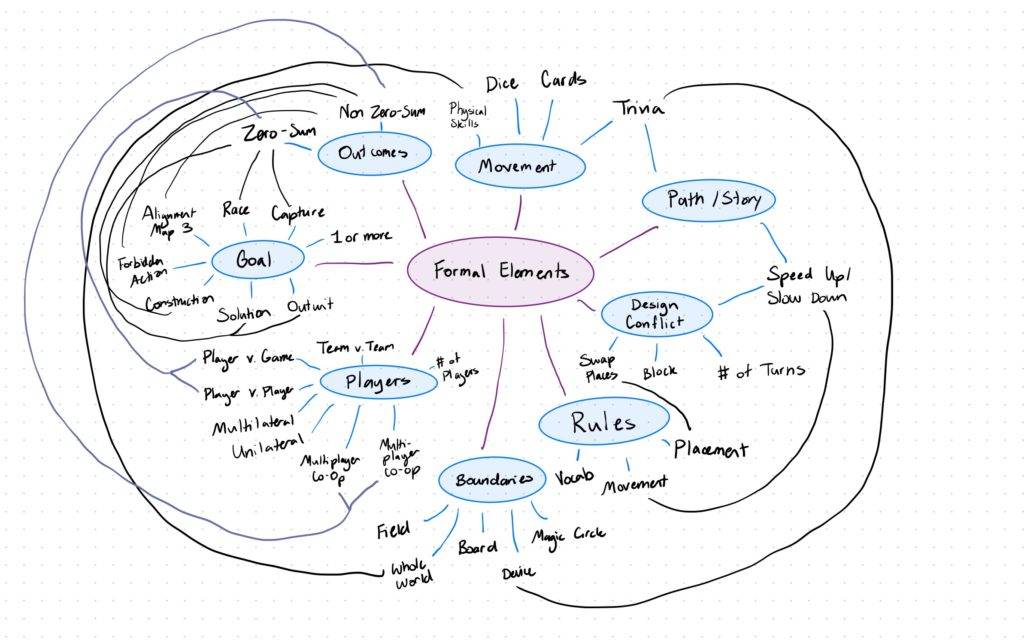 Dice
Cards
Physical
Skills
Trivia
Movement
Non Zero-Sum
Zero-Sum
Outcomes
Path / Story
Alignment
Map 3
Race
Capture
1 or more
Goal
Forbidden
Action
Construction
Solution
Outwit
Formal Elements
Speed Up/
Slow Down
Design
Conflict
Swap
Places
Block
# of Turns
Team v. Team
Player v. Game
# of
Players
Players
Player v. Player
Multilateral
Unilateral
Multiplayer
Co-Op
Multi-
player
Co-Op
Rules
Placement
Vocab
Movement
Boundaries
Field
Whole
World
Board
Device
Magic Circle